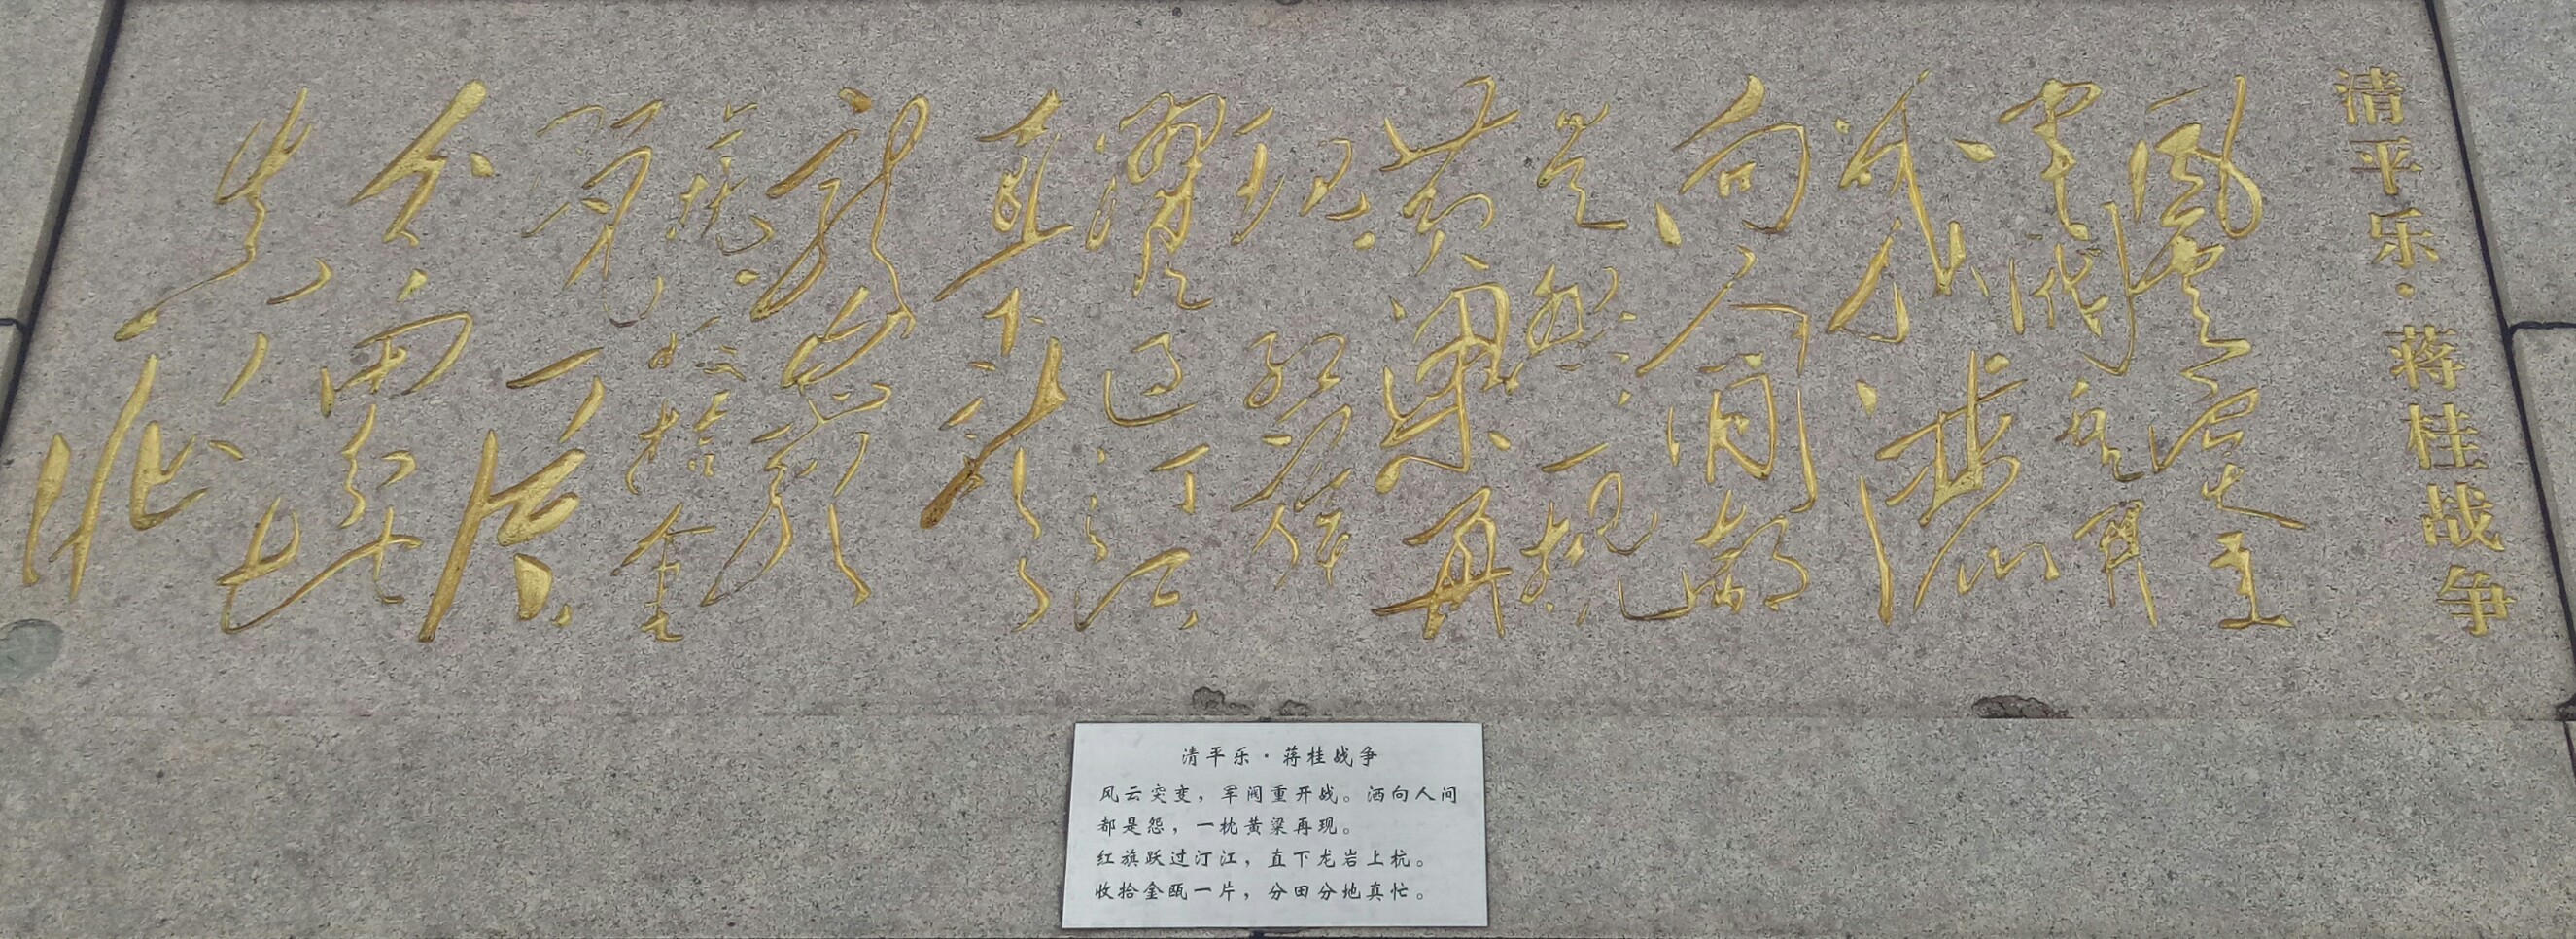 清平乐·蒋桂战争
風云突变
軍閥重開
战洒
向人间都
是怨一枕
黄粱再
现红旗
躍过汀江
直下
龍岩
上杭收拾金
甌一片
分田分地
真忙
清平乐·蒋桂战争
风云突变，军阀重开战。洒向人间
都是怨，一枕黄梁再现。
红旗跃过汀江，直下龙岩上杭。
收拾金瓯一片，分田分地真忙。